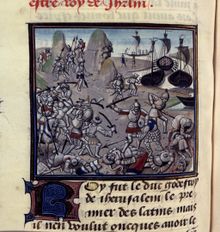 estre roy de Jhrlm
Roy fut le duc godefroy
de iherusalem le pre
mier des latins mais
il nen voulut oncques avoir le